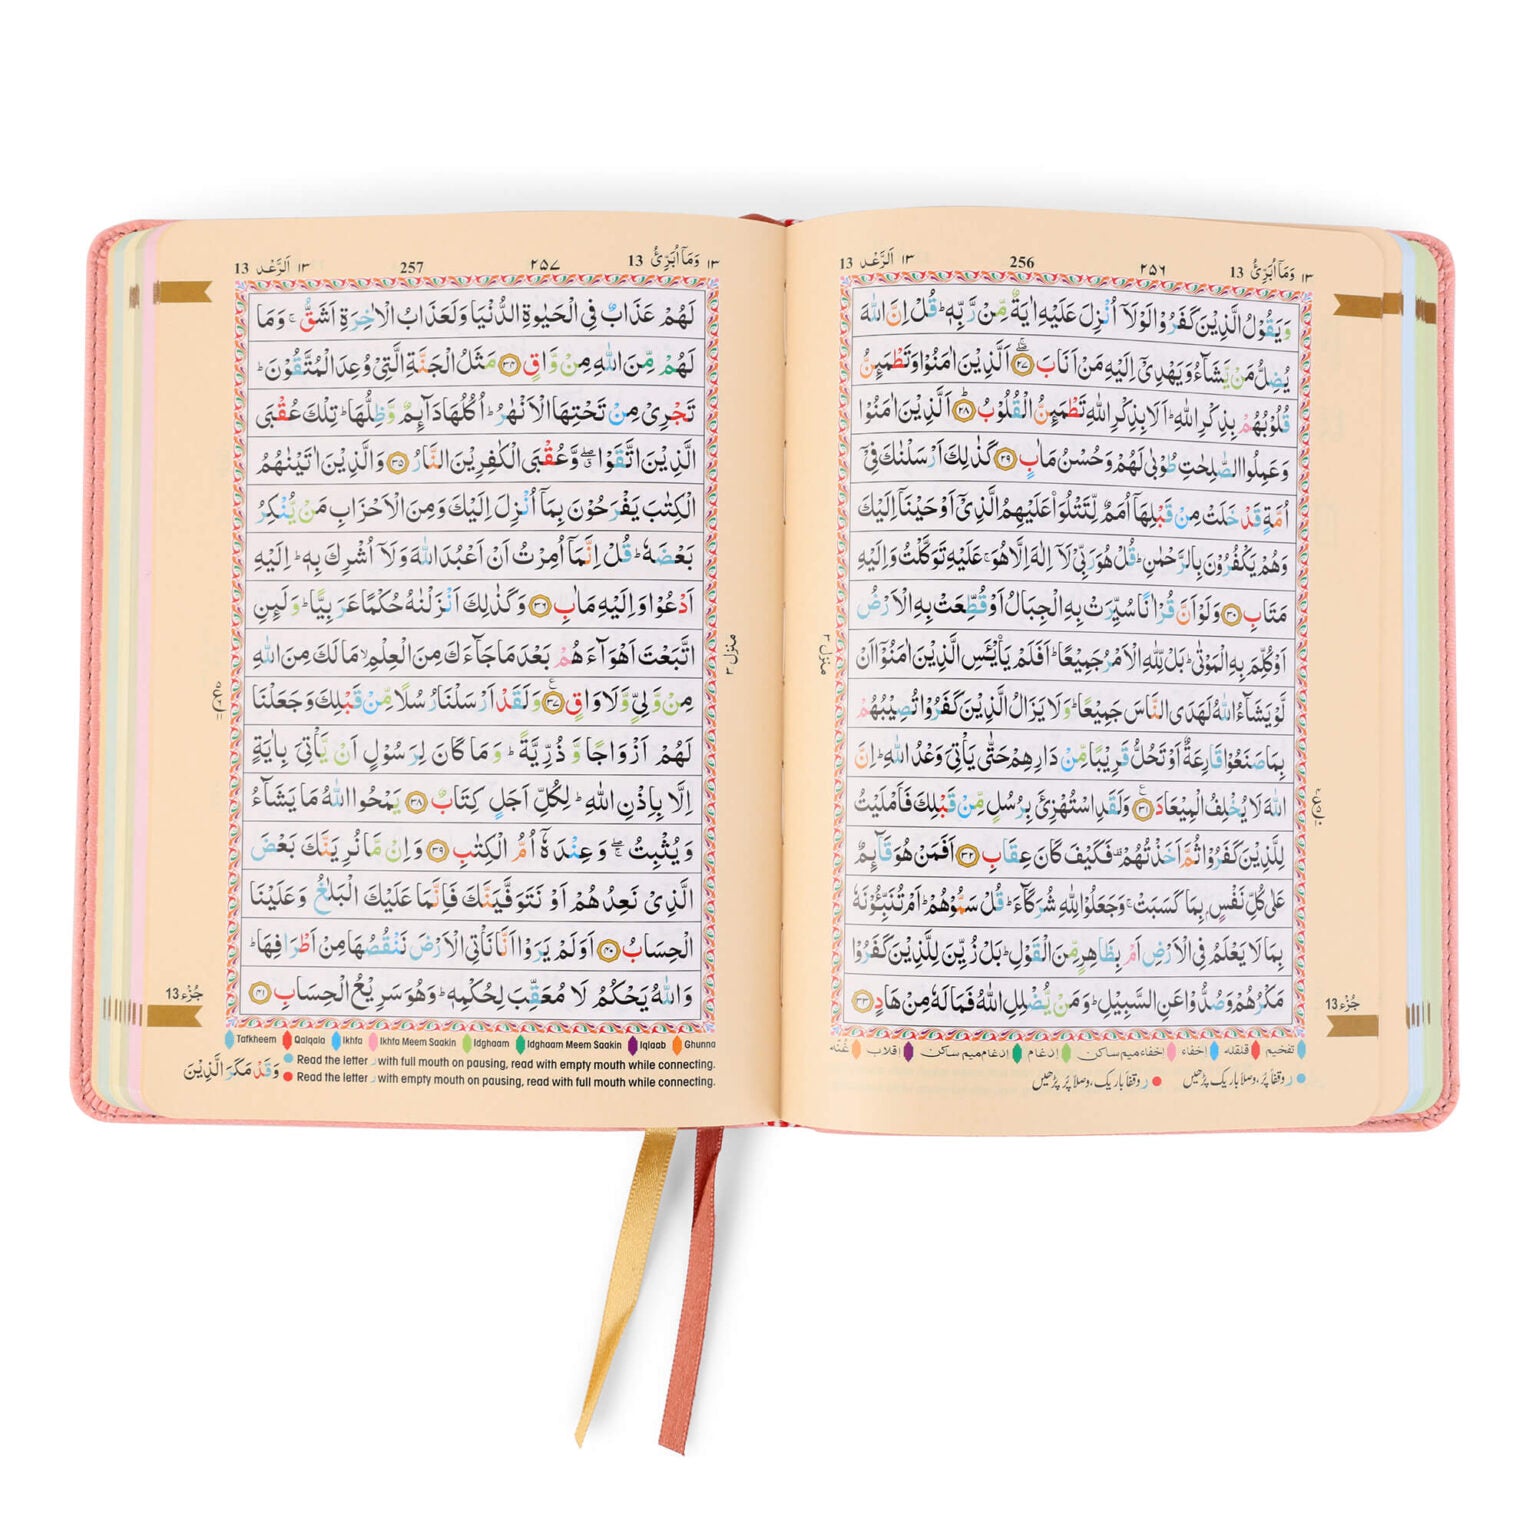 ١٣ وَمَآ اُبَرِّئُ 13 ٢٥٦ 256 ١٣ اَلرَّعْد 13
وَيَقُوْلُ الَّذِيْنَ كَفَرُوْا لَوْلَآ اُنْزِلَ عَلَيْهِ اٰيَةٌ مِّنْ رَّبِّهٖ ؕ قُلْ اِنَّ اللّٰهَ
يُضِلُّ مَنْ يَّشَآءُ وَيَهْدِىْٓ اِلَيْهِ مَنْ اَنَابَ ۖۚ ﴿۲۷﴾ اَلَّذِيْنَ اٰمَنُوْا وَتَطْمَئِنُّ
قُلُوْبُهُمْ بِذِكْرِ اللّٰهِ ؕ اَلَا بِذِكْرِ اللّٰهِ تَطْمَئِنُّ الْقُلُوْبُ ؕ ﴿۲۸﴾ اَلَّذِيْنَ اٰمَنُوْا
وَعَمِلُوا الصّٰلِحٰتِ طُوْبٰى لَهُمْ وَحُسْنُ مَاٰبٍ ﴿۲۹﴾ كَذٰلِكَ اَرْسَلْنٰكَ فِىْٓ
اُمَّةٍ قَدْ خَلَتْ مِنْ قَبْلِهَآ اُمَمٌ لِّتَتْلُوَا۟ عَلَيْهِمُ الَّذِىْٓ اَوْحَيْنَآ اِلَيْكَ
وَهُمْ يَكْفُرُوْنَ بِالرَّحْمٰنِ ؕ قُلْ هُوَ رَبِّىْ لَآ اِلٰهَ اِلَّا هُوَ ۚ عَلَيْهِ تَوَكَّلْتُ وَاِلَيْهِ
مَتَابِ ﴿۳۰﴾ وَلَوْ اَنَّ قُرْاٰنًا سُيِّرَتْ بِهِ الْجِبَالُ اَوْ قُطِّعَتْ بِهِ الْاَرْضُ
اَوْ كُلِّمَ بِهِ الْمَوْتٰى ؕ بَلْ لِّلّٰهِ الْاَمْرُ جَمِيْعًا ؕ اَفَلَمْ يَا۟يْـَٔسِ الَّذِيْنَ اٰمَنُوْٓا اَنْ
لَّوْ يَشَآءُ اللّٰهُ لَهَدَى النَّاسَ جَمِيْعًا ؕ وَلَا يَزَالُ الَّذِيْنَ كَفَرُوْا تُصِيْبُهُمْ
بِمَا صَنَعُوْا قَارِعَةٌ اَوْ تَحُلُّ قَرِيْبًا مِّنْ دَارِهِمْ حَتّٰى يَاْتِىَ وَعْدُ اللّٰهِ ؕ اِنَّ
اللّٰهَ لَا يُخْلِفُ الْمِيْعَادَ ﴿۳۱﴾ وَلَقَدِ اسْتُهْزِئَ بِرُسُلٍ مِّنْ قَبْلِكَ فَاَمْلَيْتُ
لِلَّذِيْنَ كَفَرُوْا ثُمَّ اَخَذْتُهُمْ ۟ فَكَيْفَ كَانَ عِقَابِ ﴿۳۲﴾ اَفَمَنْ هُوَ قَآئِمٌ
عَلٰى كُلِّ نَفْسٍۭ بِمَا كَسَبَتْ ۚ وَجَعَلُوْا لِلّٰهِ شُرَكَآءَ ؕ قُلْ سَمُّوْهُمْ ؕ اَمْ تُنَبِّـُٔوْنَهٗ
بِمَا لَا يَعْلَمُ فِى الْاَرْضِ اَمْ بِظَاهِرٍ مِّنَ الْقَوْلِ ؕ بَلْ زُيِّنَ لِلَّذِيْنَ كَفَرُوْا
مَكْرُهُمْ وَصُدُّوْا عَنِ السَّبِيْلِ ؕ وَمَنْ يُّضْلِلِ اللّٰهُ فَمَا لَهٗ مِنْ هَادٍ ﴿۳۳﴾
منزل ٣
جُزْء 13
تفخيم قلقله إخفاء إخفاء ميم ساكن إدغام إدغام ميم ساكن إقلاب غُنّه
ر وقفاً پُر، وصلاً باریک پڑھیں ر وقفاً باریک، وصلاً پُر پڑھیں
١٣ وَمَآ اُبَرِّئُ 13 ٢٥٧ 257 ١٣ اَلرَّعْد 13
لَهُمْ عَذَابٌ فِى الْحَيٰوةِ الدُّنْيَا وَلَعَذَابُ الْاٰخِرَةِ اَشَقُّ ۚ وَمَا
لَهُمْ مِّنَ اللّٰهِ مِنْ وَّاقٍ ﴿۳۴﴾ مَثَلُ الْجَنَّةِ الَّتِىْ وُعِدَ الْمُتَّقُوْنَ ؕ
تَجْرِىْ مِنْ تَحْتِهَا الْاَنْهٰرُ ؕ اُكُلُهَا دَآئِمٌ وَّظِلُّهَا ؕ تِلْكَ عُقْبَى
الَّذِيْنَ اتَّقَوْا ۖ وَّعُقْبَى الْكٰفِرِيْنَ النَّارُ ﴿۳۵﴾ وَالَّذِيْنَ اٰتَيْنٰهُمُ
الْكِتٰبَ يَفْرَحُوْنَ بِمَآ اُنْزِلَ اِلَيْكَ وَمِنَ الْاَحْزَابِ مَنْ يُّنْكِرُ
بَعْضَهٗ ؕ قُلْ اِنَّمَآ اُمِرْتُ اَنْ اَعْبُدَ اللّٰهَ وَلَآ اُشْرِكَ بِهٖ ؕ اِلَيْهِ
اَدْعُوْا وَاِلَيْهِ مَاٰبِ ﴿۳۶﴾ وَكَذٰلِكَ اَنْزَلْنٰهُ حُكْمًا عَرَبِيًّا ؕ وَلَئِنِ
اتَّبَعْتَ اَهْوَآءَهُمْ بَعْدَ مَا جَآءَكَ مِنَ الْعِلْمِ ۙ مَا لَكَ مِنَ اللّٰهِ
مِنْ وَّلِىٍّ وَّلَا وَاقٍ ﴿۳۷﴾ وَلَقَدْ اَرْسَلْنَا رُسُلًا مِّنْ قَبْلِكَ وَجَعَلْنَا
لَهُمْ اَزْوَاجًا وَّذُرِّيَّةً ؕ وَمَا كَانَ لِرَسُوْلٍ اَنْ يَّاْتِىَ بِاٰيَةٍ
اِلَّا بِاِذْنِ اللّٰهِ ؕ لِكُلِّ اَجَلٍ كِتَابٌ ﴿۳۸﴾ يَمْحُوا اللّٰهُ مَا يَشَآءُ
وَيُثْبِتُ ۖۚ وَعِنْدَهٗٓ اُمُّ الْكِتٰبِ ﴿۳۹﴾ وَاِنْ مَّا نُرِيَنَّكَ بَعْضَ
الَّذِىْ نَعِدُهُمْ اَوْ نَتَوَفَّيَنَّكَ فَاِنَّمَا عَلَيْكَ الْبَلٰغُ وَعَلَيْنَا
الْحِسَابُ ﴿۴۰﴾ اَوَلَمْ يَرَوْا اَنَّا نَاْتِى الْاَرْضَ نَنْقُصُهَا مِنْ اَطْرَافِهَا ؕ
وَاللّٰهُ يَحْكُمُ لَا مُعَقِّبَ لِحُكْمِهٖ ؕ وَهُوَ سَرِيْعُ الْحِسَابِ ﴿۴۱﴾
منزل ٣
جُزْء 13
Tafkheem Qalqala Ikhfa Ikhfa Meem Saakin Idghaam Idghaam Meem Saakin Iqlaab Ghunna
Read the letter ر with full mouth on pausing, read with empty mouth while connecting.
Read the letter ر with empty mouth on pausing, read with full mouth while connecting.
وَقَدْ مَكَرَ الَّذِيْنَ